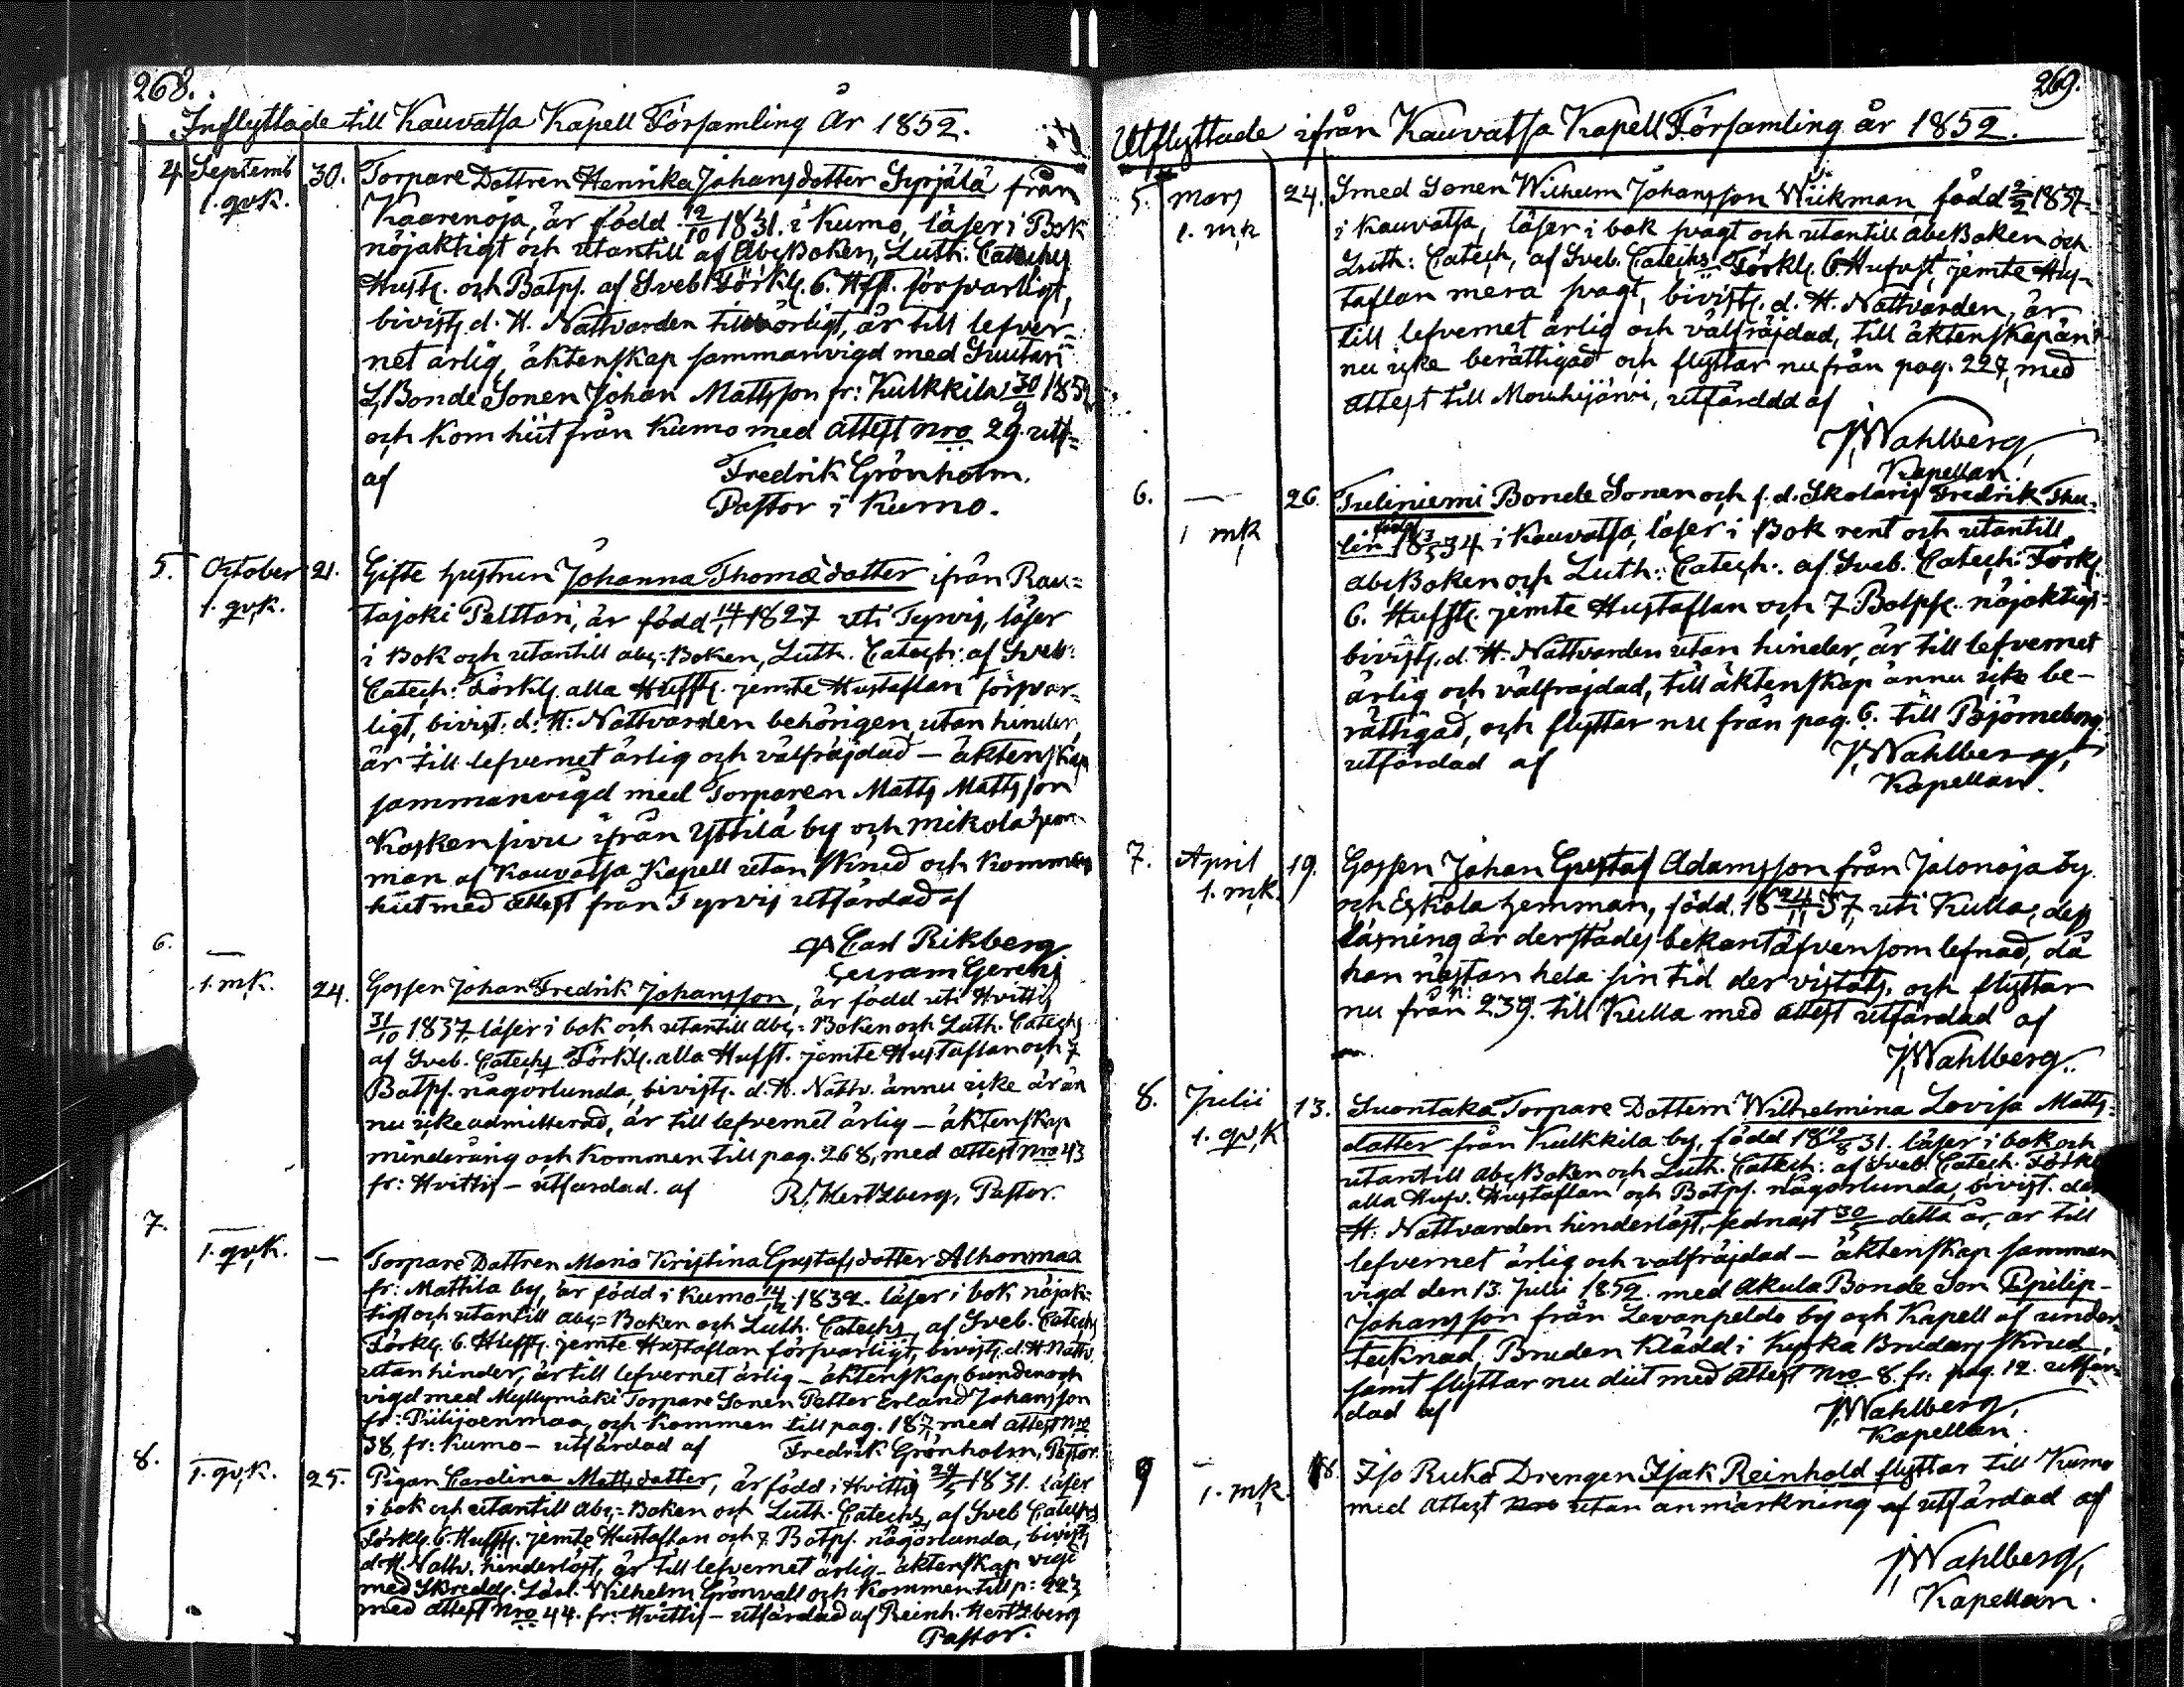 268.
Inflyttade till Kauvatsa Kapell Församling År 1852.
4. Septemb 30. Torpare Dottren Henrika Johansdotter Syrjälä från
1. qvk. Kaarenoja, är född 12/10 1831. i Kumo, läser i Bok
nöjaktigt och utantill af Abc Boken, Luth. Cateches
Hust. och Botps. af Sveb. Förkl. 6. Hfst. försvarligt,
bivists d. H. Nattvarden tillbörligt, är till lefver-
net ärlig, äktenskap sammanvigd med Suutari
L, Bonde Sonen Johan Mattsson fr: Kulkkila 30/9 1852
och kom hiit från Kumo med attest nro 29. utf=
af Fredrik Grönholm.
Pastor i Kumo.
5. October 21. Gifte hustrun Johanna Thomædotter ifrån Rau=
1. qvk. tajoki Pelttari, är född 14/1 1827 uti Tyrvis, läser
i Bok och utantill abc-Boken, Luth. Catech: af Sveb:
Catech: Förkl. alla Hufst. jemte Hustaflan försvar-
ligt, bivist. d: H: Nattvarden behörigen, utan hinder,
är till lefvernet ärlig och välfräjdad – äktenskap
sammanvigd med Torparen Matts Mattsson
Koskensivu ifrån Yttilä by och Mikola hem-
man af Kauvatsa Kapell utan skrud och kommen
hiit med attest från Tyrvis utfärdad af
Carl Rikberg
Curam Gerens
6. — 24. Gossen Johan Fredrik Johansson, är född uti Hvittis
1. mk. 31/10 1837, läser i bok och utantill abc-Boken och Luth. Catechs
af Sveb. Catechs Förkl. alla Hufst. jemte Hustaflan och 7
Botps. någorlunda, bivists. d. H. Nattv. ännu icke är än
nu icke admitterad, är till lefvernet ärlig – äktenskap
minderårig och kommen till pag. 268, med attest nro 43
fr: Hvittis – utfärdad. af R. Hertzberg, Pastor.
7. — — Torpare Dottren Maria Kristina Gustafsdotter Alhonmaa
1. qvk. fr: Mattila by, är född i Kumo 1832. läser i bok nöjak-
tigt och utantill abc-Boken och Luth. Catechs af Sveb. Catechs
Förkl. 6. Hufst. jemte Hustaflan försvarligt, bivists. d. H. Nattv.
utan hinder, är till lefvernet ärlig – äktenskap bunden och
vigd med Myllymäki Torpare Sonen Petter Erland Johansson
fr: Piilijoenmaa, och kommen till pag. 187, med attest nro
38, fr: Kumo – utfärdad af Fredrik Grönholm, Pastor.
8. — 25. Pigan Carolina Mattsdotter, är född i Hvittis 1831. läser
1. qvk. i bok och utantill abc-Boken och Luth. Catechs, af Sveb Catechs
Förkl. 6. Hufst. jemte Hustaflan och 7 Botps. någorlunda, bivists
d. H. Nattv. hinderlöst, är till lefvernet ärlig – äktenskap vigd
med Skredd. Lärl. Wilhelm Grönvall och kommen till p: 223
med attest nro 44. fr: Hvittis – utfärdad af Reinh. Hertzberg
Pastor.
269.
Utflyttade ifrån Kauvatsa Kapell Församling år 1852.
5. Mars 24. Smed Sonen Wilhelm Johansson Wiikman, född 2/2 1837
1. mk i Kauvatsa, läser i bok svagt och utantill abc Boken och
Luth: Catech, af Sveb. Catechs. Förkl. 6. Hufvst, jemte Hus-
taflan mera svagt, bivists. d. H. Nattvarden, är
till lefvernet ärlig och välfräjdad, till äktenskap än-
nu icke berättigad och flyttar nu från pag. 227, med
attest till Mouhijärvi, utfärddd af
J. Wahlberg,
Kapellan
6. — 26. Tuliniemi Bonde Sonen och f. d. Skolaris Fredrik Thu-
1 mk lin född 18 3/5 34 i Kauvatsa, läser i Bok rent och utantill
abc Boken och Luth: Catech. af Sveb. Catech: Förkl.
6. Hufst. jemte Hustaflan och 7 Botpsl. nöjaktigt-
bivists. d. H. Nattvarden utan hinder, är till lefvernet
ärlig och välfräjdad, till äktenskap ännu icke be-
rättigad, och flyttar nu från pag. 6. till Björneborg
utfärdad af J. Wahlberg,
Kapellan.
7. April 19. Gossen Johan Gustaf Adamsson från Jalonoja by.
1. mk. och Eskola hemman, född. 18 24/11 37, uti Kulla, dess
läsning är derstädes bekant äfvensom lefnad, då
han nästan hela sin tid der vistats, och flyttar
nu från p: 239. till Kulla med attest utfärdad af
J. Wahlberg.
8. Julii 13. Suontaka Torpare Dottern Wilhelmina Lovisa Matts-
1. qvk dotter från Kulkkila by, född 18 19/8 31. läser i bok och
utantill abc Boken och Luth. Catech: af Sveb. Catech. Förkl.
alla Hufv. Hustaflan och Botps. någorlunda, bivist. den
H. Nattvarden hinderlöst, sednast 30/5 detta år, är till
lefvernet ärlig och välfräjdad – äktenskap samman
vigd den 13. Julii 1852. med Akula Bonde Son Epilip-
Johansson från Levanpelto by och Kapell af under-
tecknad, Bruden klädd i kyrka Brudars skrud,
samt flyttar nu diit med attest nro 8. fr: pag. 12. utfär-
dad af J. Wahlberg,
Kapellan.
9 — 18. Iso Ruka Drengen Isak Reinhold flyttar till Kumo
1. mk. med attest nro utan anmärkning af utfärdad af
J. Wahlberg,
Kapellan.